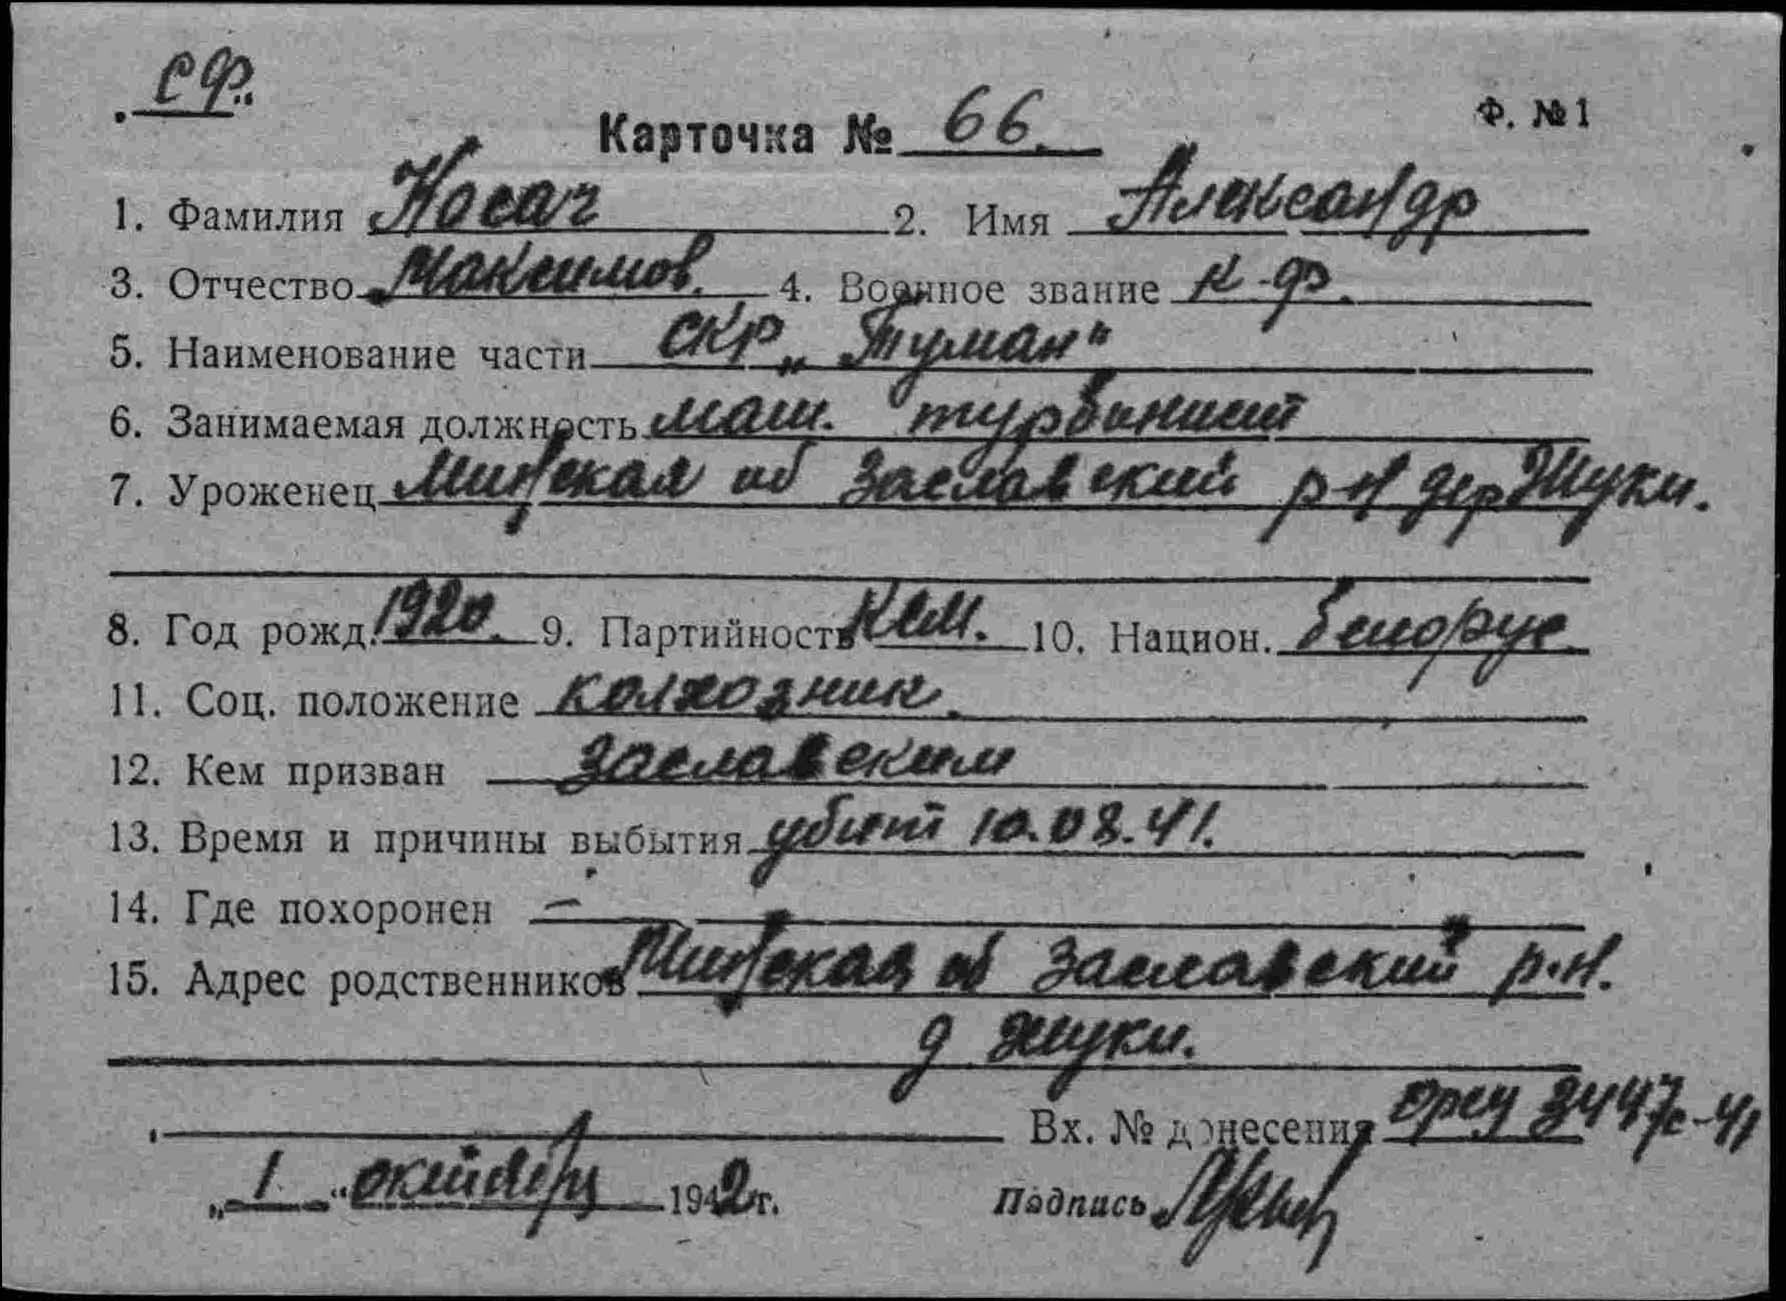 СФ.
Ф. №1
Карточка № 66.
1. Фамилия Носач 2. Имя Александр
3. Отчество Максимов. 4. Военное звание к-ф.
5. Наименование части СКР „Туман"
6. Занимаемая должность маш. турбинист
7. Уроженец Минская об Заславский р-н дер Жуки.
8. Год рожд. 1920. 9. Партийность КСМ. 10. Национ. белорус
11. Соц. положение колхозник.
12. Кем призван Заславским
13. Время и причины выбытия убит 10.08.41.
14. Где похоронен —
15. Адрес родственников Минская об Заславский р.н.
д Жуки.
Вх. № донесения 3447с-41
„1" октября 1942 г. Подпись